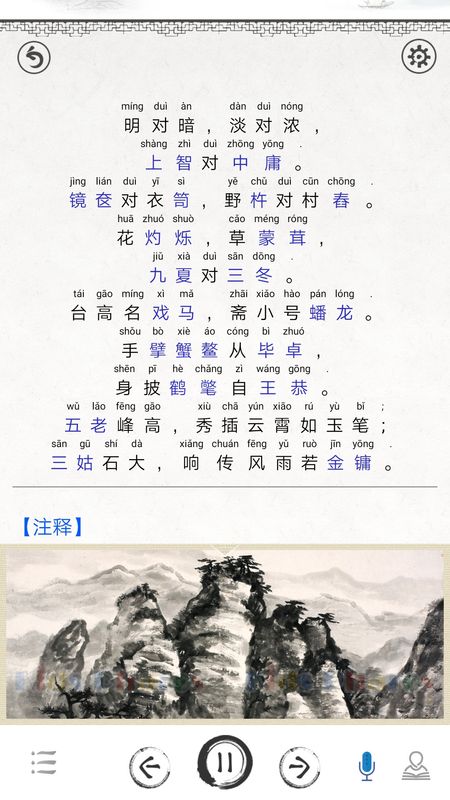 míng duì àn dàn duì nóng
明对暗，淡对浓，
shàng zhì duì zhōng yōng .
上智对中庸。
jìng lián duì yī sì yě chǔ duì cūn chōng .
镜奁对衣笥，野杵对村舂。
huā zhuó shuò cǎo méng róng
花灼烁，草蒙茸，
jiǔ xià duì sān dōng .
九夏对三冬。
tái gāo míng xì mǎ zhāi xiǎo hào pán lóng .
台高名戏马，斋小号蟠龙。
shǒu bò xiè áo cóng bì zhuó
手擘蟹鳌从毕卓，
shēn pī hè chǎng zì wáng gōng .
身披鹤氅自王恭。
wǔ lǎo fēng gāo xiù chā yún xiāo rú yù bǐ ;
五老峰高，秀插云霄如玉笔；
sān gū shí dà xiǎng chuán fēng yǔ ruò jīn yōng .
三姑石大，响传风雨若金镛。
【注释】